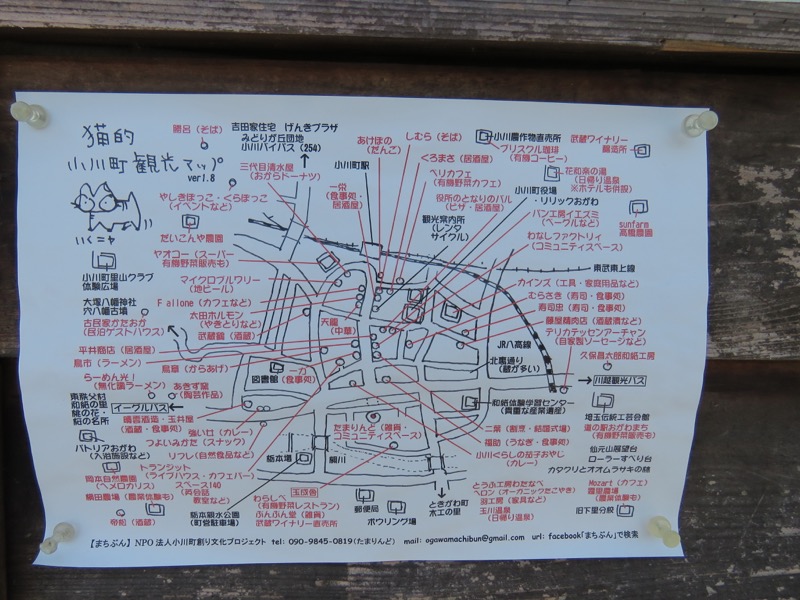 猫的
小川町観光マップ
ver1.8
いくニャ
勝呂（そば）
吉田家住宅 げんきプラザ
みどりが丘団地
小川バイパス（254）
三代目清水屋
（おからドーナツ）
やしきぼっこ・くらぼっこ
（イベントなど）
だいこんや農園
ヤオコー（スーパー
有機野菜販売も）
小川町里山クラブ
体験広場
マイクロブルワリー
（地ビール）
大塚八幡神社
穴八幡古墳
Fallone（カフェなど）
太田ホルモン
（やきとりなど）
古民家かたおか
（民泊ゲストハウス）
武蔵鶴（酒蔵）
平井商店（居酒屋）
島市（ラーメン）
らーめん光！
（無化調ラーメン）
鳥章（からあげ）
あきず窯
（陶芸作品）
東秩父村
和紙の里
桃の花・
鮎の名所
イーグルバス
晴雲酒造・玉井屋
（酒蔵・食事処）
強い豆（カレー）
つよいみかた（スナック）
リフレ（自然食品など）
パトリアおがわ
（入浴施設など）
岡本自然農園
（ヘメロカリス）
トランジット
（ライブハウス・カフェバー）
スペース140
（英会話
教室など）
横田農場（農業体験も）
帝松（酒蔵）
栃本親水公園
（町営駐車場）
栃本堰
槻川
図書館
一力
（食事処）
天龍
（中華）
一栄
（食事処・
居酒屋）
小川町駅
あけぼの
（だんご）
しむら（そば）
くろまさ（居酒屋）
ベリカフェ
（有機野菜カフェ）
役所のとなりのバル
（ピザ・居酒屋）
観光案内所
（レンタ
サイクル）
小川農作物直売所
ブリスクル珈琲
（有機コーヒー）
武蔵ワイナリー
醸造所
花和楽の湯
（日帰り温泉
※ホテルも併設）
小川町役場
・リリックおがわ
パン工房イエスミ
（ベーグルなど）
わなしファクトリィ
（コミュニティスペース）
sunfarm
高橋農園
東武東上線
カインズ（工具・家庭用品など）
むらさき（寿司・食事処）
寿司忠（寿司・食事処）
藤屋精肉店（酒蔵漬など）
デリカテッセンアーチャン
（自家製ソーセージなど）
JR八高線
北裏通り
（蔵が多い）
久保昌太郎和紙工房
川越観光バス
和紙体験学習センター
（貴重な産業遺産）
埼玉伝統工芸会館
道の駅おがわまち
（有機野菜販売も）
二葉（割烹・結婚式場）
福助（うなぎ・食事処）
小川ぐらしの茄子おやじ
（カレー）
仙元山展望台
ローラーすべり台
カタクリとオオムラサキの林
たまりんど（雑貨
コミュニティスペース）
とうふ工房わたなべ
ベロン（オーガニックたこやき）
羽工房（家具など）
玉川温泉
（日帰り温泉）
Mozart（カフェ）
霜里農場
（農業体験も）
旧下里分校
玉成舎
わらしべ
（有機野菜レストラン）
ぶんぶん堂（雑貨）
武蔵ワイナリー直売所
郵便局
ボウリング場
ときがわ町
木工の里
【まちぶん】NPO法人小川町創り文化プロジェクト tel: 090-9845-0819（たまりんど） mail: ogawamachibun@gmail.com url: facebook「まちぶん」で検索